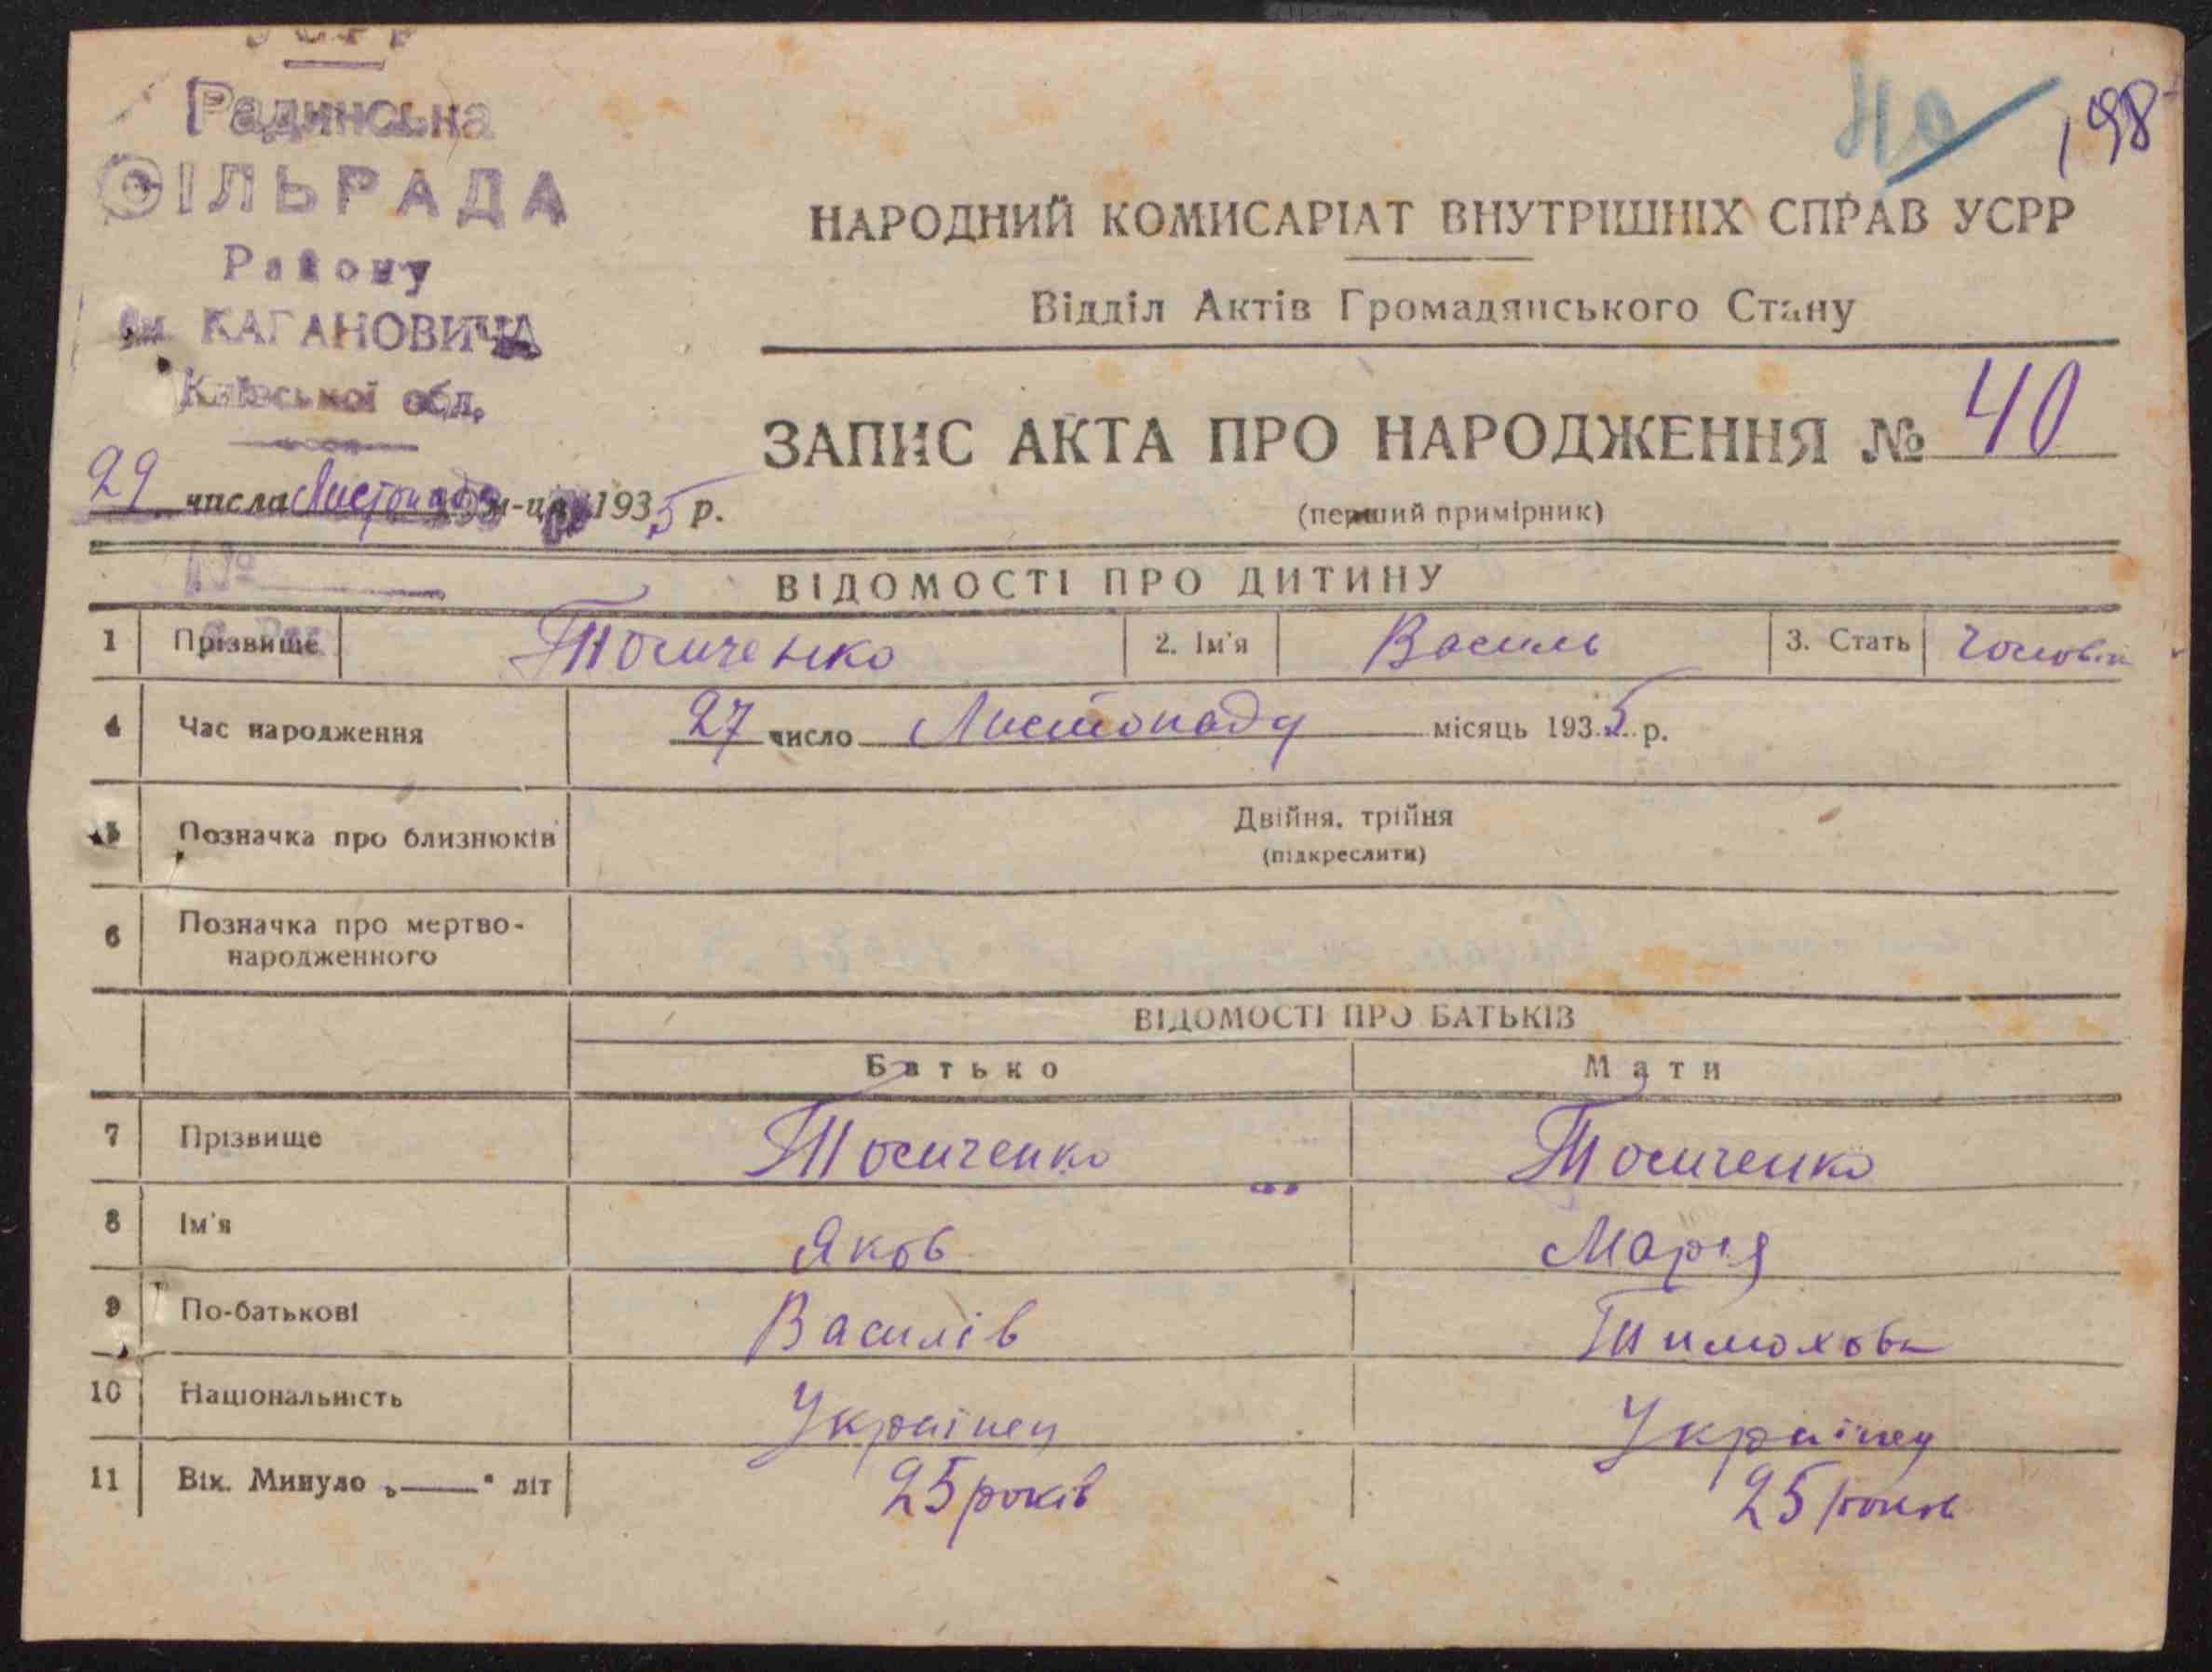 УСРР
Радинська
СІЛЬРАДА
Району
ім. КАГАНОВИЧА
Київської обл.
29 числа Листопада м-ця 1935 р.
№
110
198
НАРОДНИЙ КОМИСАРІАТ ВНУТРІШНІХ СПРАВ УСРР
Відділ Актів Громадянського Стану
ЗАПИС АКТА ПРО НАРОДЖЕННЯ № 40
(перший примірник)
ВІДОМОСТІ ПРО ДИТИНУ
1 Прізвище Тосиченко 2. Ім'я Василь 3. Стать Чоловік
4 Час народження 27 число Листопаду місяць 1935 р.
5 Позначка про близнюків Двійня, трійня
(підкреслити)
6 Позначка про мертво-
народженного
ВІДОМОСТІ ПРО БАТЬКІВ
Батько Мати
7 Прізвище Тосиченко Тосиченко
8 Ім'я Яков Марія
9 По-батькові Василів Тимохова
10 Національність Українец Українец
11 Вік. Минуло „ “ літ 25 років 25 років